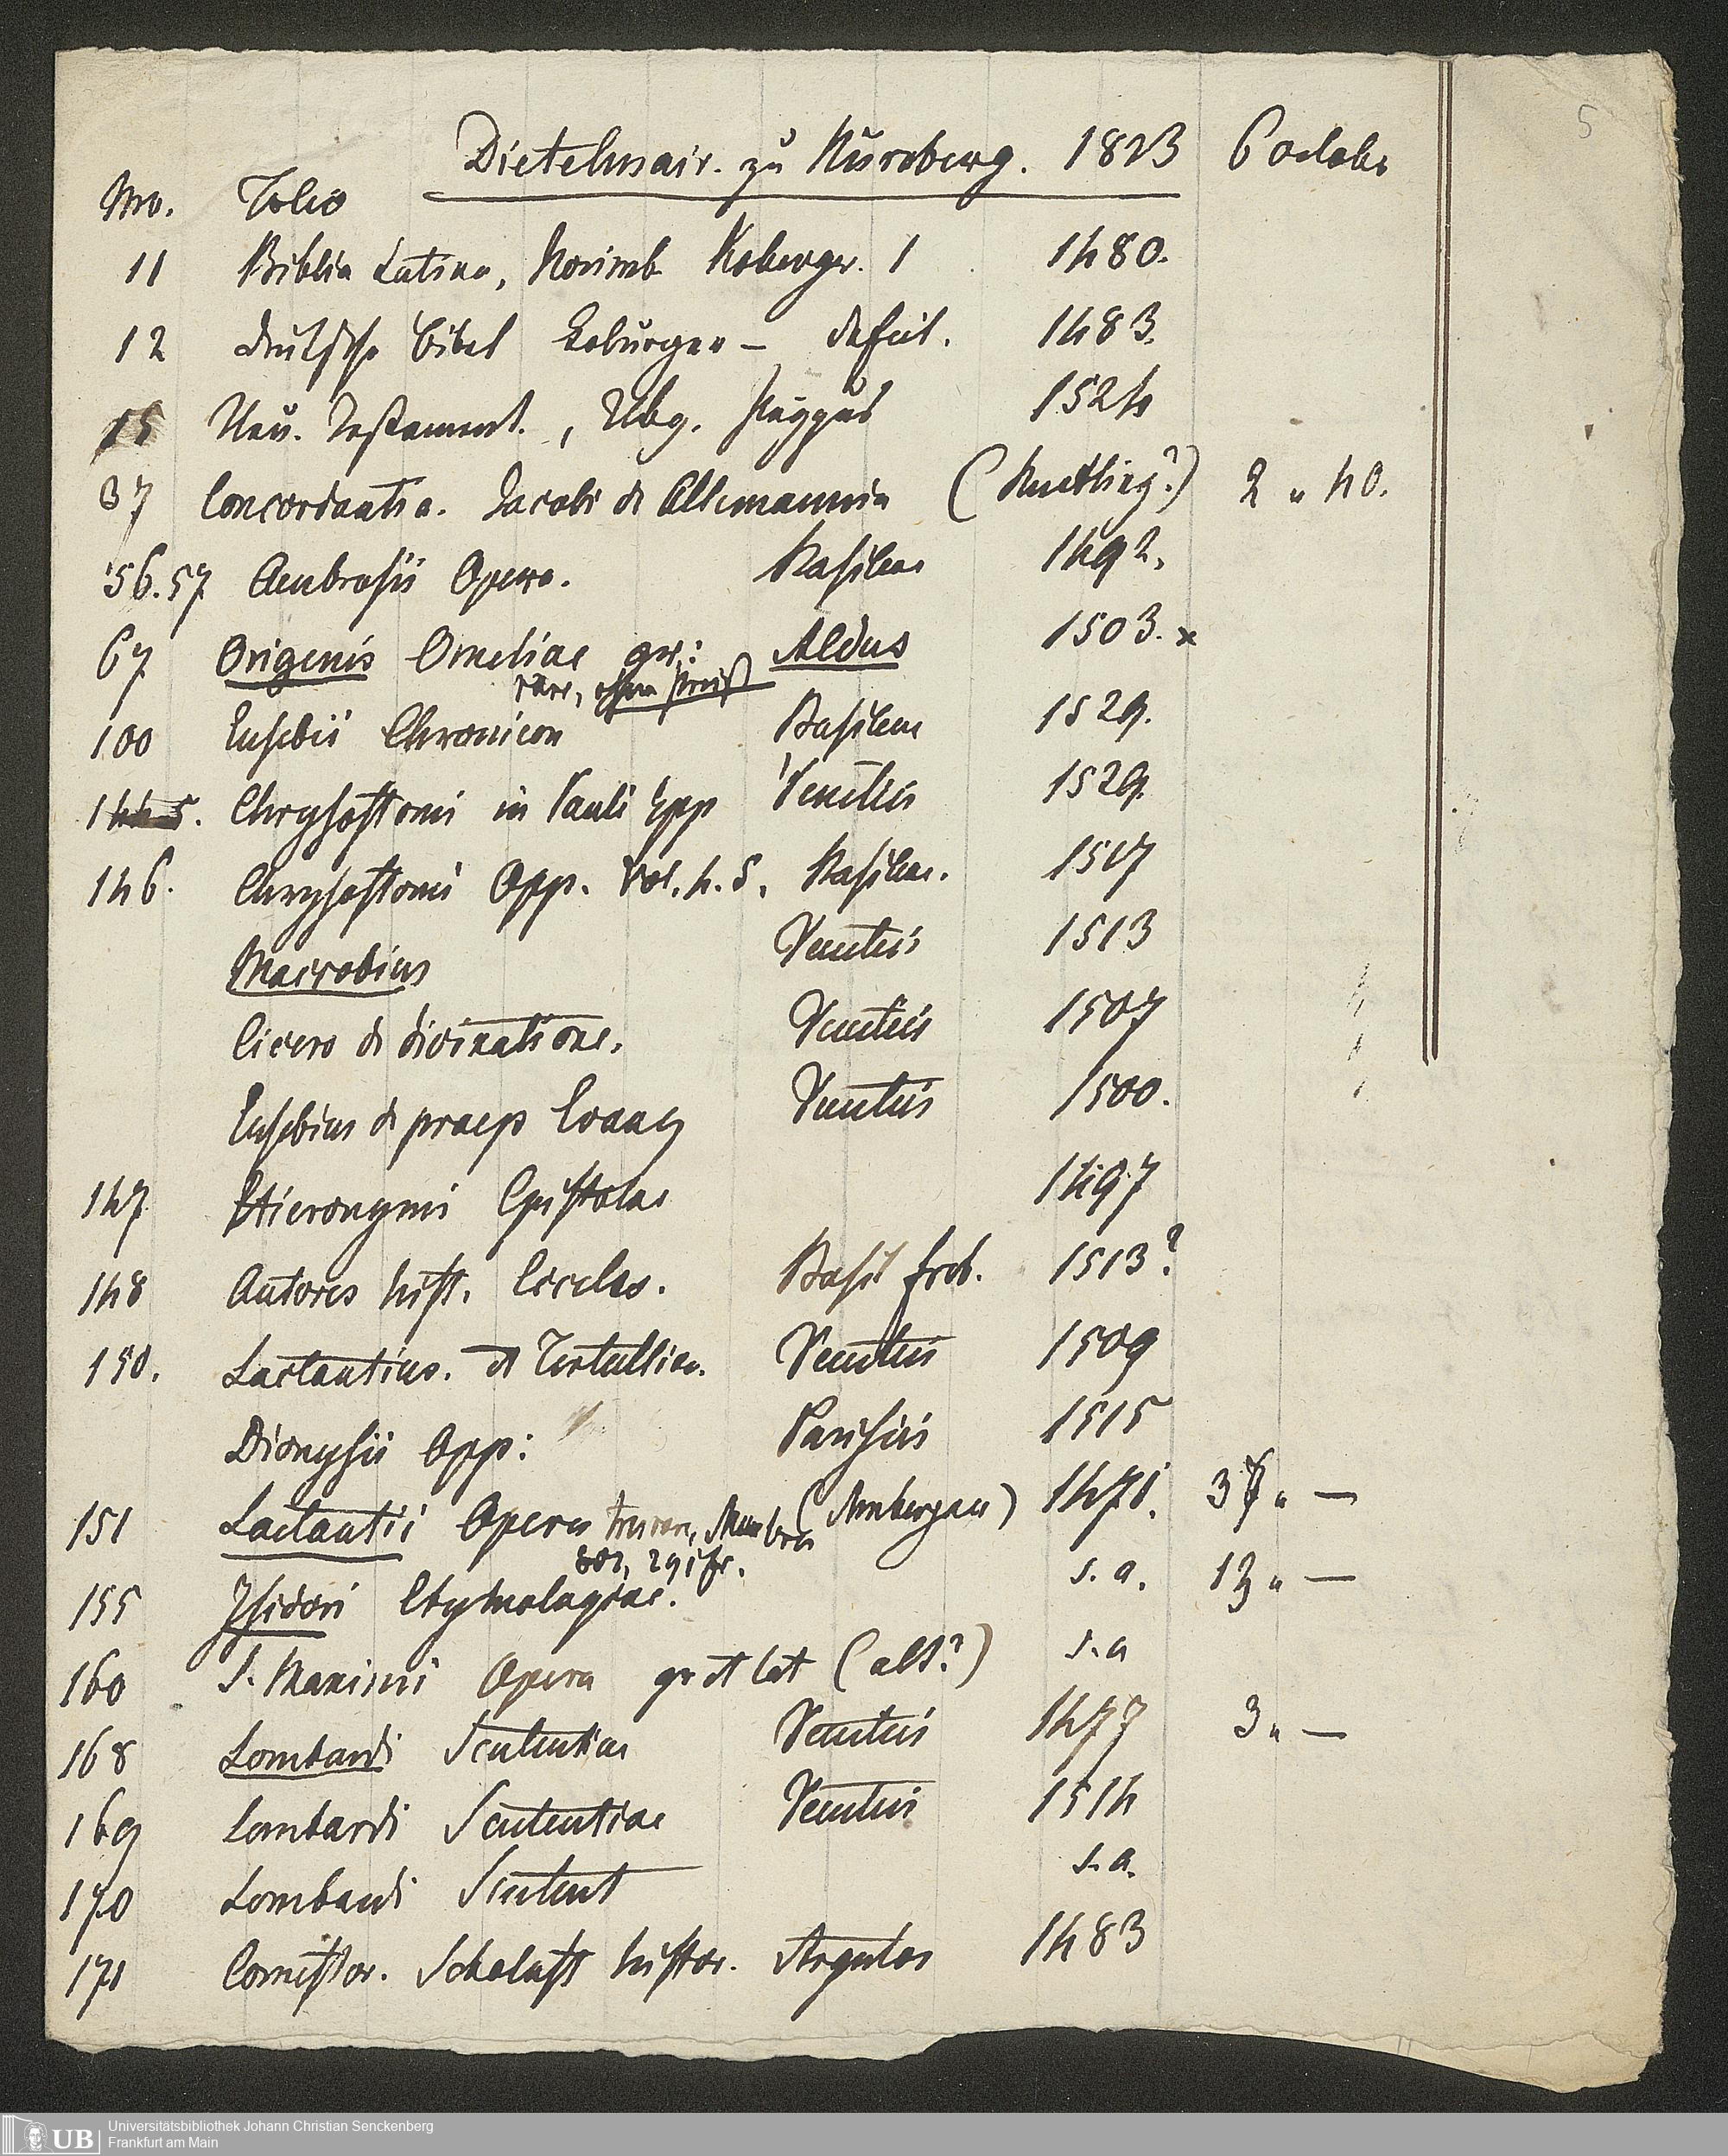 5
Dietelmair. zu Nürnberg. 1823 6 octobr
Nro. Folio
11 Biblia Latina, Norimb Koberger. 1 1480.
12 deutsche Bibel Koburger – defect. 1483.
15 Neu. Testament., Nbg. 1524
37 Concordantia. Jacobi de Allemannia (Reutling?) 2 „ 40.
56.57 Ambrosii Opera. Basileae 1492.
67 Origenis Omeliae gr.: Aldus 1503. x
rare, ohne preiß
100 Eusebii Chronicon Basileae 1529.
144 5. Chrysostomi in Pauli Epp Venetiis 1529.
146. Chrysostomi Opp. Vol. 4. 5. Basileae. 1517
Macrobius Venetiis 1513
Cicero de divinatione. Venetiis 1507
Eusebius de praep Evang Venetiis 1500.
147 Hieronymi Epistolae 1497
148 Autores hist. Eccles. Basil frob. 1513?
150. Lactantius. et Tertullian. Venetiis 1509
Dionysii Opp: Parisiis 1515
151 Lactantii Opera (Ambergau) 1471. 37 „ —
155 Isidori Etymologiae. s. a. 13 „ —
160 S. Maximi Opera gr et lat (alt?) s. a
168 Lombardi Sententiae Venetiis 1477 3 „ —
169 Lombardi Sententiae Venetiis 1514
170 Lombardi Sentent s. a.
171 Comestor. Scholast histor. Argentor 1483
Universitätsbibliothek Johann Christian Senckenberg
UB Frankfurt am Main